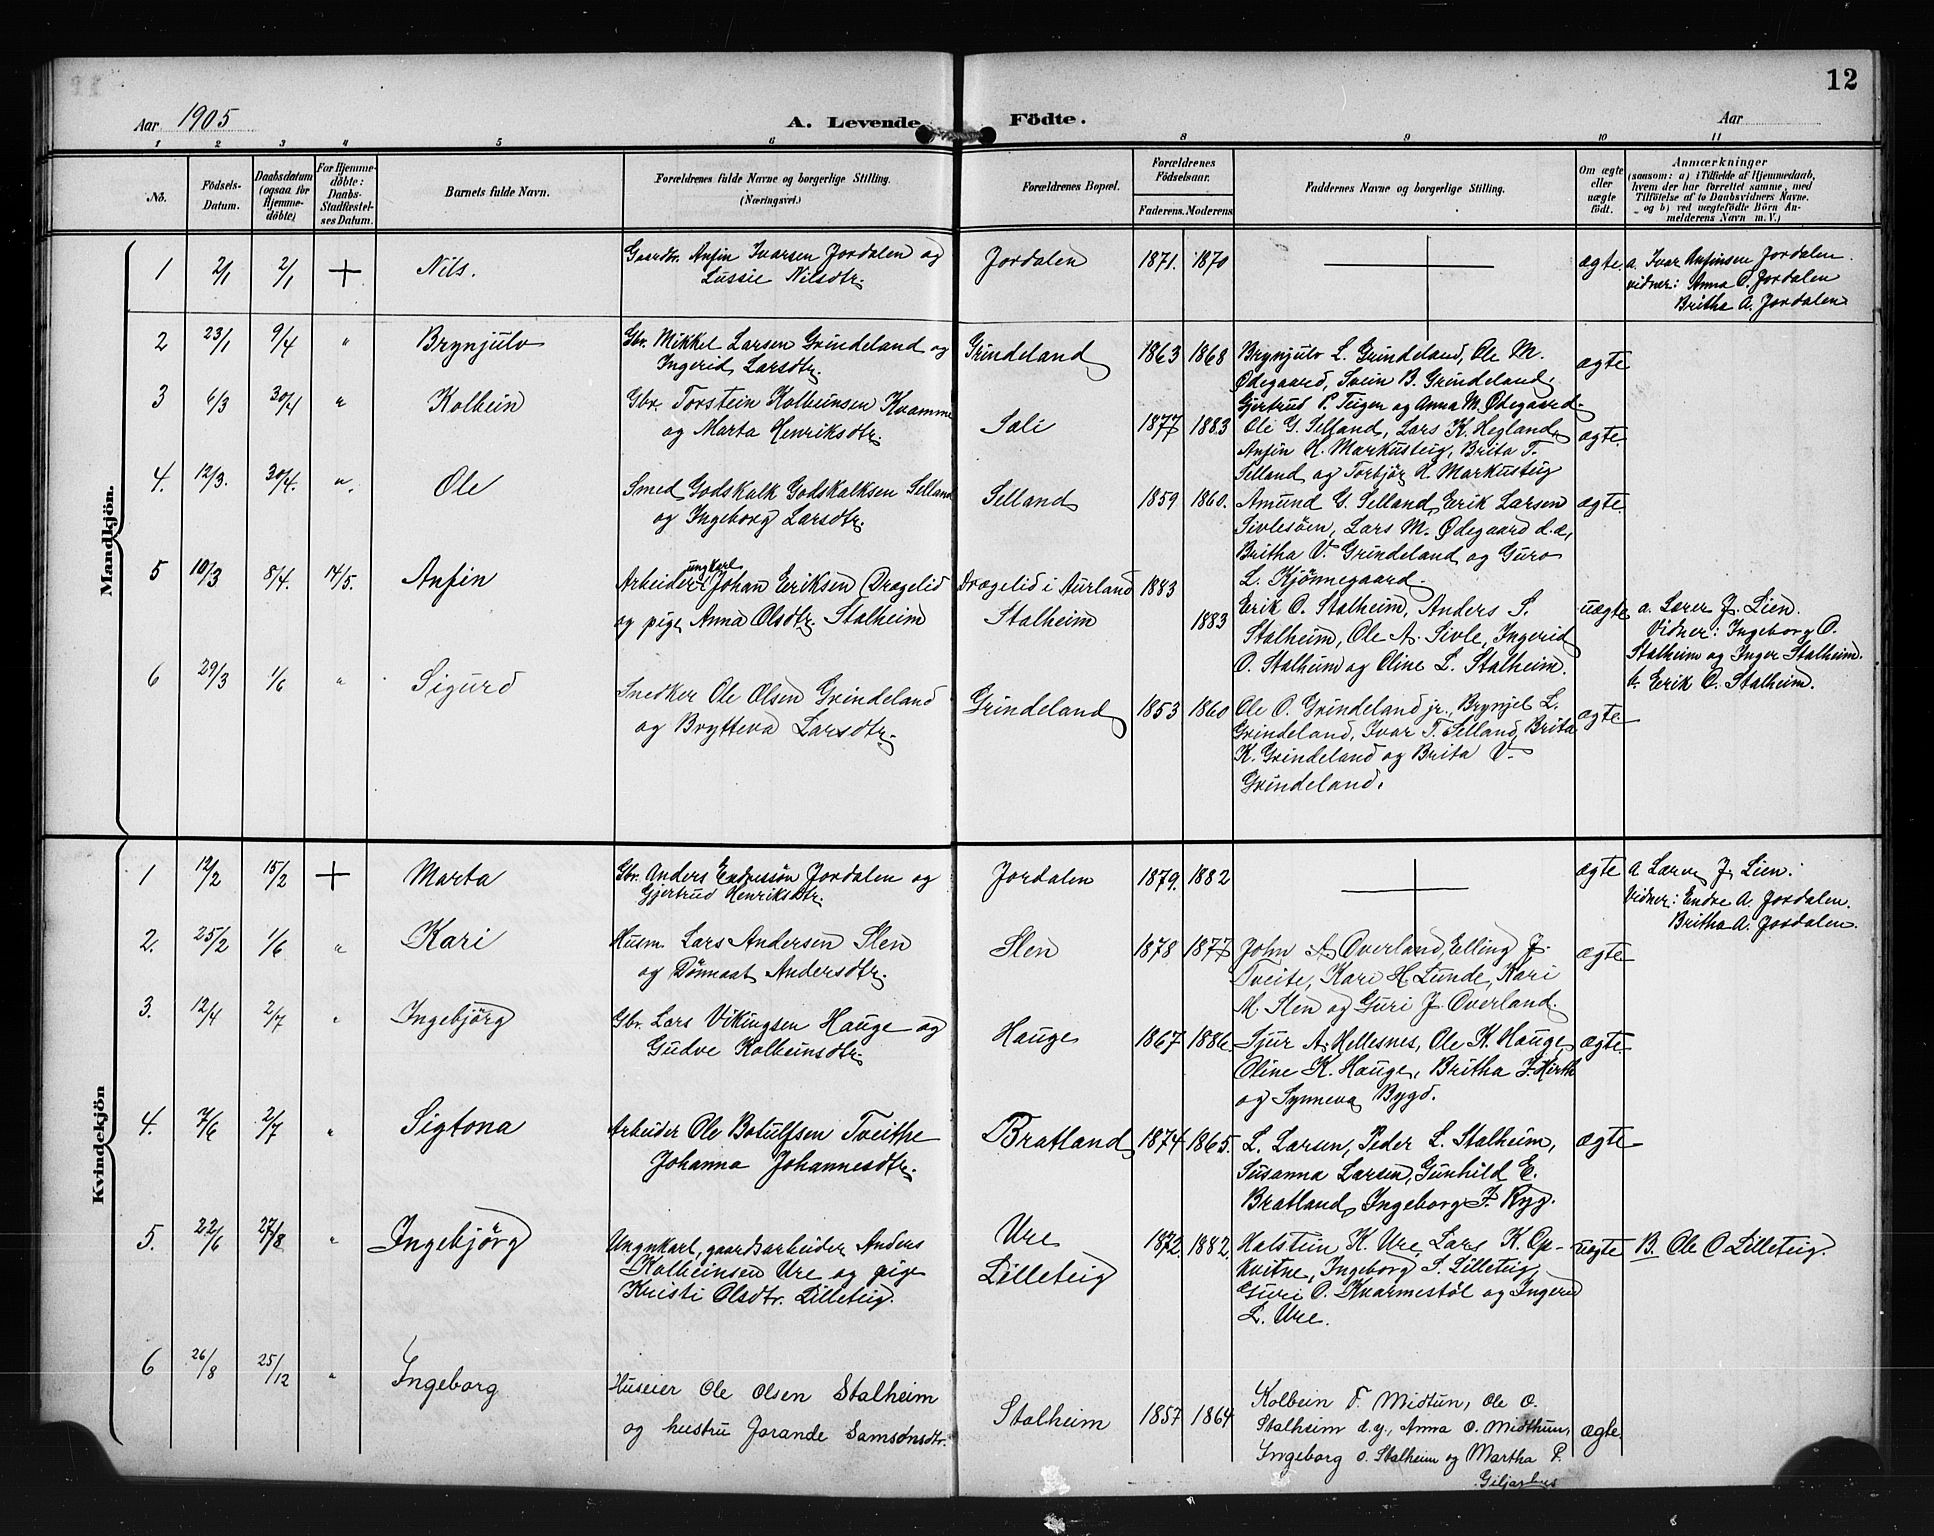 12
Aar 1905
A. Levende Födte.
Aar
1 2 3 4 5 6 8 9 10 11
No.
Födsels-Datum.
Daabsdatum (ogsaa for Hjemmedöbte)
For Hjemmedöbte: Daabs-Stadfæstelses Datum.
Barnets fulde Navn.
Forældrenes fulde Navne og borgerlige Stilling. (Næringsvei.)
Forældrenes Bopæl.
Forældrenes Födselsaar.
Faderens. Moderens
Faddernes Navne og borgerlige Stilling.
Om ægte eller uægte født.
Anmærkninger
(saasom: a) i Tilfælde af Hjemmedaab,
hvem der har forrettet samme, med
Tilföielse af to Daabsvidners Navne,
og b) ved uægtefödte Börn An-
melderens Navn m. V.)
Mandkjön.
1 2/1 2/1 + Nils. Gaardbr. Anfin Ivarsen Jordalen og Jordalen 1871. 1870 ægte. a. Ivar Anfinsen Jordalen.
Lussie Nilsdtr. vidner: Anna O. Jordalen
Britha A. Jordalen
2 23/1 9/4 " Brynjulv Gbr. Mikkel Larsen Grindeland og Grindeland 1863 1868 Brynjulv L. Grindeland, Ole M. ægte
Ingerid Larsdtr. Ødegaard, Svein B. Grindeland,
Gjertrud P. Teigen og Anna M. Ødegaard.
3 6/3 30/4 " Kolbein Gbr. Torstein Kolbeinsen Kvamme Sali 1877 1883 Ole G. Selland, Lars K. Hegland, ægte
og Marta Henriksdtr. Anfin H. Markusteig, Brita T.
Selland og Torbjör H. Markusteig
4. 12/3. 30/4. ". Ole Smed Godskalk Godskalksen Selland Selland 1859 1860. Amund G. Selland, Erik Larsen ægte
og Ingeborg Larsdtr. Sivlesöen, Lars M. Ødegaard d.æ,
Britha V. Grindeland og Guro
L. Kjönnegaard.
5 10/3 8/4. 14/5. Anfin Arbeider, ungkarl Johan Eriksen Drægelid Drægelid i Aurland 1883 Erik O. Stalheim, Anders S. uægte a. Lærer J. Lien.
og pige Anna Olsdtr. Stalheim Stalheim 1883 Stalheim, Ole A. Sivle, Ingerid Vidner: Ingeborg O.
O. Stalheim og Oline L. Stalheim. Stalheim og Inger Stalheim.
b. Erik O. Stalheim.
6 29/3 1/6 " Sigurd Snedker Ole Olsen Grindeland Grindeland 1853 1860 Ole O. Grindeland jr., Brynjel L. ægte
og Brytteva Larsdtr. Grindeland, Ivar T. Selland, Brita
K. Grindeland og Brita V.
Grindeland.
Kvindekjön
1 12/2 15/2 + Marta Gbr. Anders Endresön Jordalen og Jordalen 1879. 1882 ægte a Lærer J. Lien.
Gjertrud Henriksdtr. Vidner: Endre A. Jordalen.
Britha A. Jordalen.
2. 25/2 1/6 " Kari Husm. Lars Andersen Slen Slen 1878 1877 John A. Overland, Elling J. ægte
og Dönnaat Andersdtr. Tveite, Kari H Lunde, Kari
M. Slen og Guri J. Overland.
3. 12/4 2/7 " Ingebjörg Gbr. Lars Vikingsen Hauge og Hauge 1867 1886. Sjur A. Hellesnes, Ole K. Hauge, ægte.
Gudve Kolbeinsdtr. Oline K. Hauge, Britha J. Hirth
og Synneva Bygd.
4. 7/6 2/7 " Sigtona Arbeider Ole Botulfsen Tveithe Bratland 1874. 1865. L. Larsen, Peder L. Stalheim, ægte
Johanna Johannesdtr. Susanna Larsen, Gunhild E.
Bratland, Ingeborg J. Ryg.
5. 22/6 27/8 " Ingebjörg Ungkarl, gaardsarbeider Anders Ure 1872. 1882. Halstein K. Ure, Lars K. Op- uægte B. Ole O Lilleteig.
Kolbeinsen Ure og pige Lilleteig kvitne, Ingeborg S. Lilleteig,
Kristi Olsdtr. Lilleteig. Guri O. Kvarmestöl og Ingerid
L. Ure.
6 26/8 25/12 " Ingeborg Huseier Ole Olsen Stalheim Stalheim 1857 1864 Kolbein T. Midtun, Ole O. ægte.
og hustru Jorande Samsonsdtr. Stalheim d.y., Anna O. Midthun,
Ingeborg O. Stalheim og Martha P.
Giljarhus